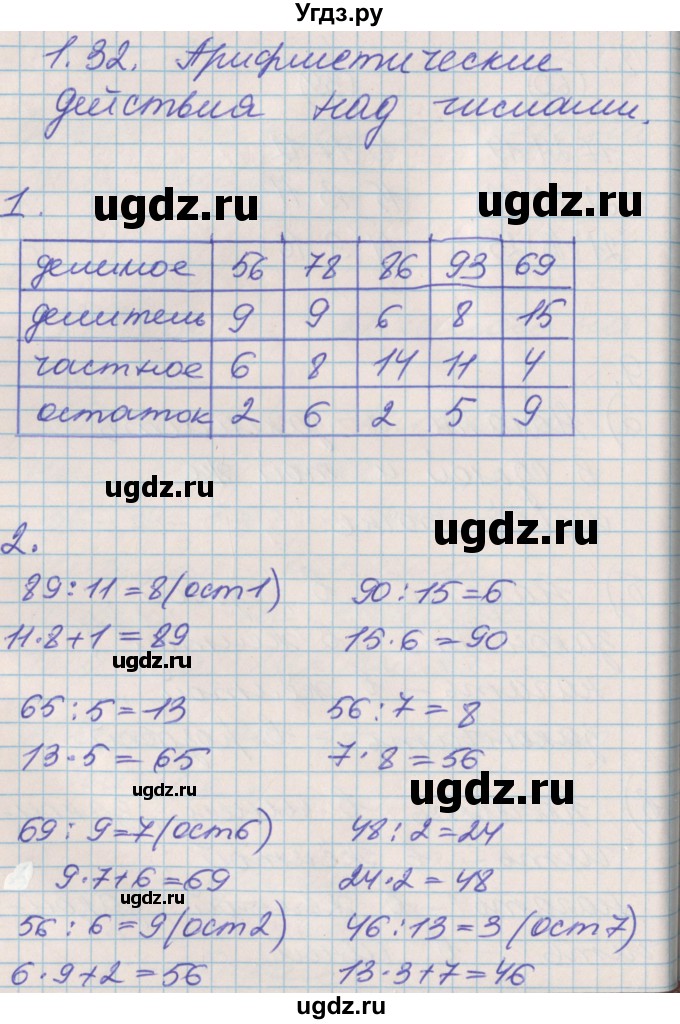 Угдз.ру
1.32. Арифметические
действия над числами.
1. ugdz.ru ugdz.ru
делимое 56 78 86 93 69
делитель 9 9 6 8 15
частное 6 8 14 11 4
остаток 2 6 2 5 9
ugdz.ru ugdz.ru
2.
89:11=8(ост1) 90:15=6
11·8+1=89 15·6=90
ugdz.ru
65:5=13 56:7=8
13·5=65 7·8=56
ugdz.ru ugdz.ru
69:9=7(ост6) 48:2=24
9·7+6=69 24·2=48
ugdz.ru
56:6=9(ост2) 46:13=3(ост7)
6·9+2=56 13·3+7=46
ugdz.ru